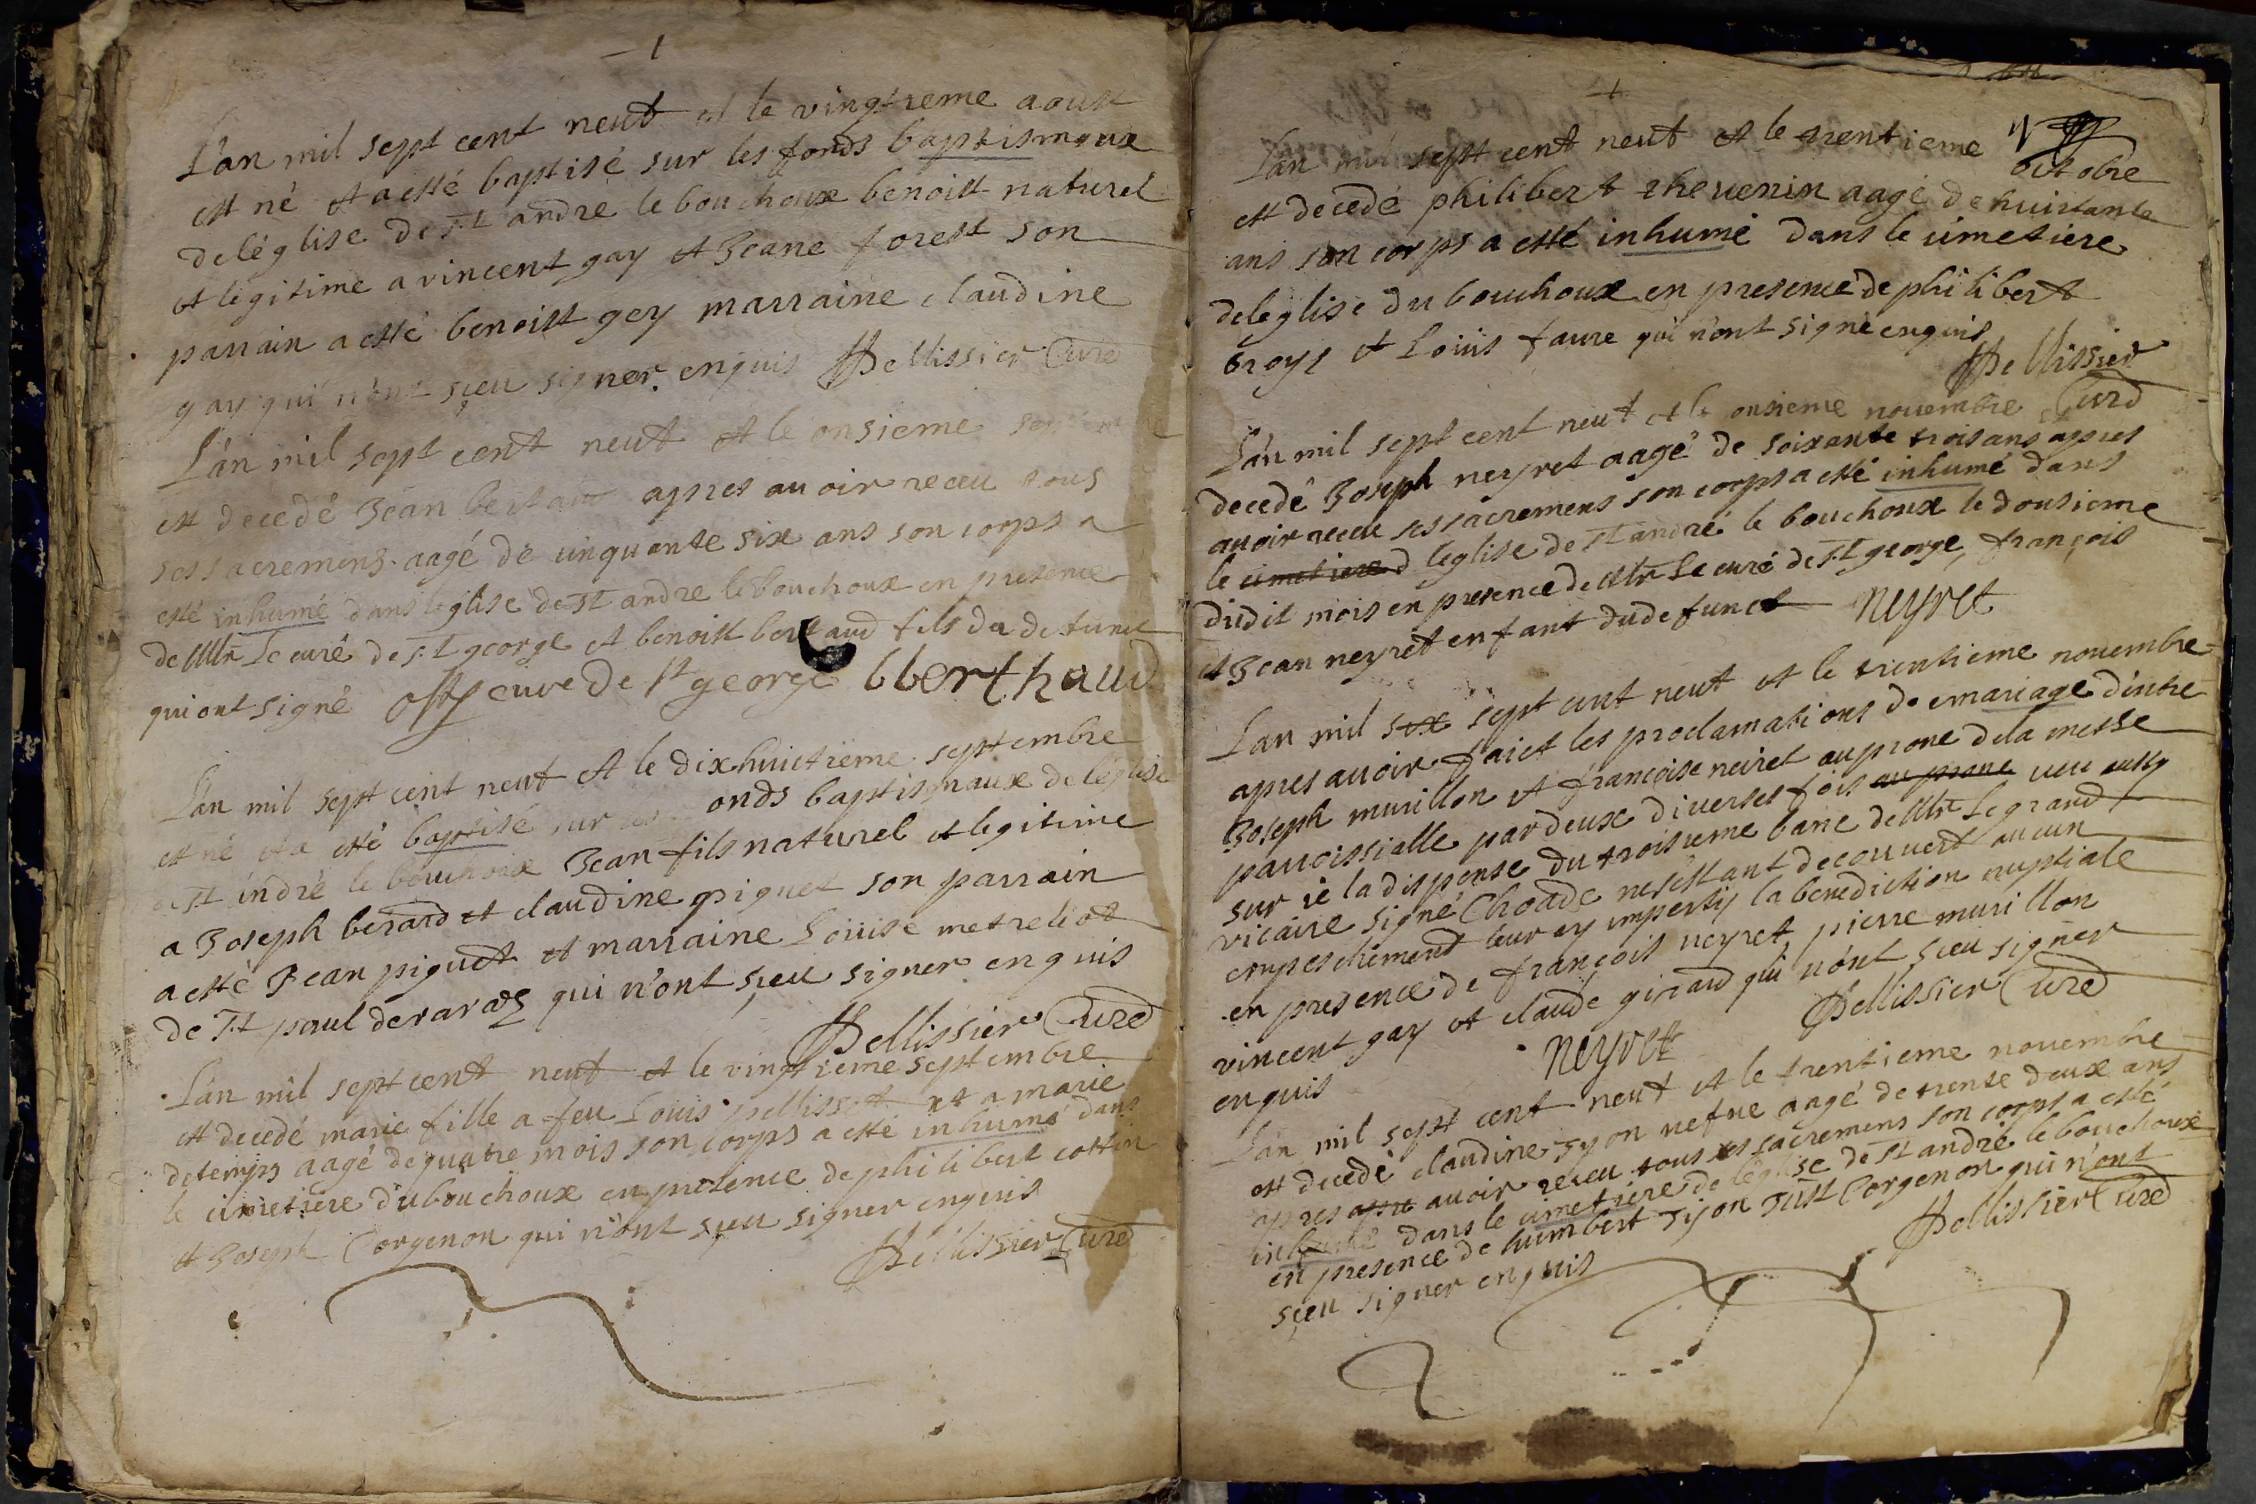 L'an mil sept cent neuf et le vingtieme aoust
est né et a esté baptisé sur les fonds baptismaux
de léglise de St andre le bouchoux benoist naturel
et legitime a vincent gay et Jeane forest son
parrain a esté benoist gey marraine claudine
gay qui n'ont sçeu signer enquis Pellissier Curé
L'an mil sept cent neuf et le onsieme
est decedé Jean bertaud apres auoir receu tous
ses sacremens aagé de cinquante six ans son corps a
esté inhumé dans léglise de St andre le bouchoux en presence
de Mr le curé de St george et benoist bertaud fils du defunct
qui ont signé curé de st george bberthaud
L'an mil sept cent neuf et le dixhuictieme septembre
est né et a esté baptisé sur onds baptismaux de léglise
St andré le bouchoux Jean fils naturel et legitime
a Joseph berard et claudine piguet son parrain
a esté Jean piguet et marraine Loüise metreliot
de St paul devarax qui n'ont sçeu signer enquis
Pellissier Curé
L'an mil sept cent neuf et le vingtieme septembre
est decedé marie fille a feu Louis pellisset et a marie
detemps aagé de quatre mois son corps a esté inhumé dans
le cimetiere du bouchoux en presence de philibert cottin
et Joseph Corgenon qui n'ont sçeu signer enquis
Pellissier Curé
L'an mil sept cent neuf et le trentieme
octobre
est decedé philibert thevenin aagé de huittante
ans son corps a esté inhumé dans le cimetiere
de leglise du bouchoux en presence de philibert
broye et Loüis faure qui n'ont signé enquis
Pellissier
Curé
L'an mil sept cent neuf et le onsieme novembre
decedé Joseph neyret aagé de soixante trois ans apres
auoir receu ses sacremens son corps a esté inhumé dans
le cimetiere léglise de St andré le bouchoux le dousieme
dudit mois en presence de Mr le curé de St george, françois
et Jean neyret enfant du defunct neyret
L'an mil six sept cent neuf et le trentieme novembre
apres auoir faict les proclamations de mariage d'entre
Joseph murillon et françoise neiret au prone de la messe
parroissialle par deux diverses fois au prone veu aussy
sur ie la dispense du troisieme banc de Mr le grand
vicaire signé Choade ne s'estant decouvert aucun
empeschement leur ay imperty la benediction nuptiale
en presence de françois neyret, pierre murillon
vincent gay et claude girard qui n'ont sceu signer
enquis neyret Pellissier Curé
L'an mil sept cent neuf et le trentieme novembre
est decedé claudine syon vefue aagé de trente deux ans
apres apre auoir receu tous ses sacremens son corps a esté
inhumé dans le cimetiere de léglise de St andré le bouchoux
en presence de humbert syon Just Corgenon qui n'ont
sçeu signer enquis Pellissier Curé